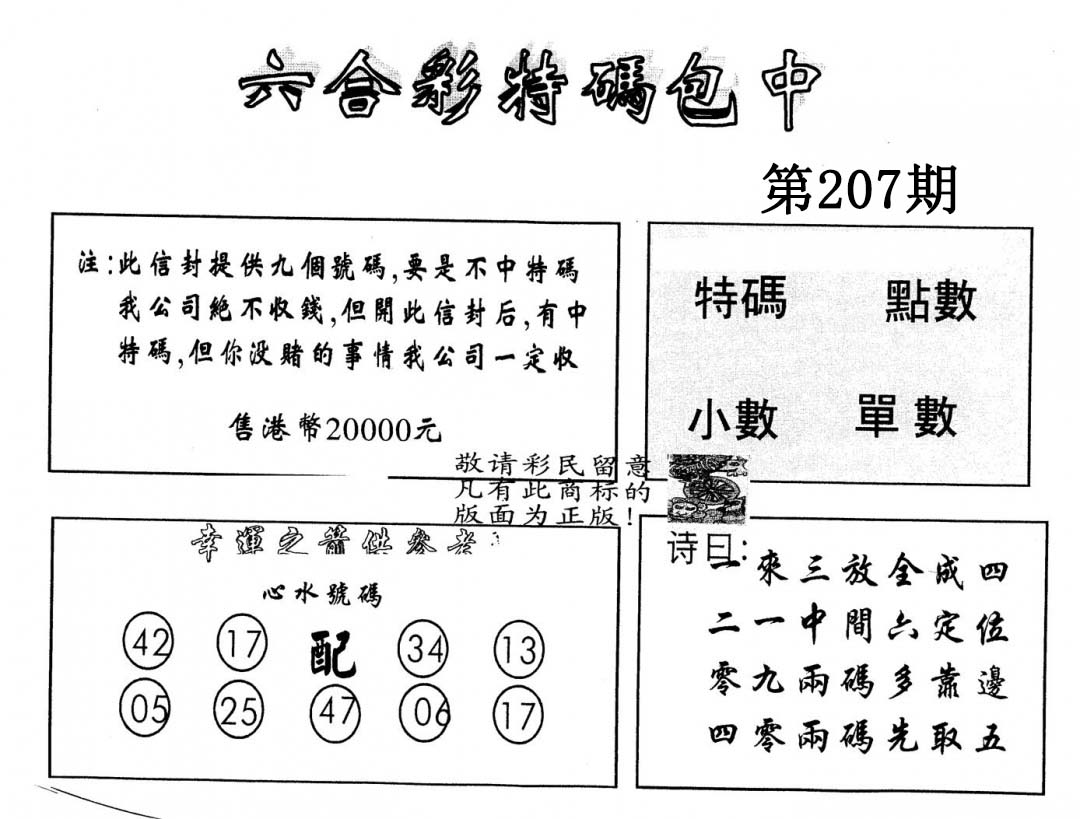 六合彩特碼包中
第207期
注:此信封提供九個號碼,要是不中特碼
我公司絕不收錢,但開此信封后,有中
特碼,但你没賭的事情我公司一定收
售港幣20000元
特碼 點數
小數 單數
敬请彩民留意
凡有此商标的
版面为正版!
幸運之箭供參考
心水號碼
42 17 配 34 13
05 25 47 06 17
诗曰:
一來三放全成四
二一中間六定位
零九兩碼多靠邊
四零兩碼先取五